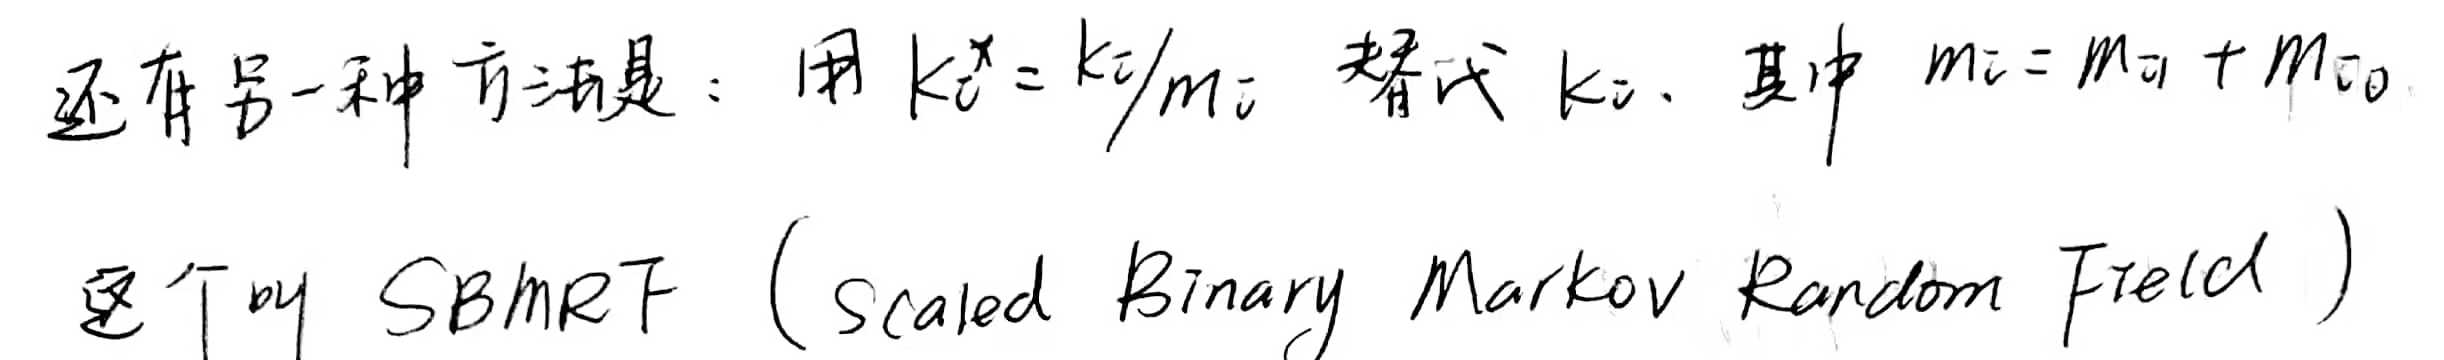 还有另一种方法是：用 kᵢ* = kᵢ/mᵢ 替代 kᵢ、其中 mᵢ = mᵢ₁ + mᵢ₀
这个叫 SBMRF (Scaled Binary Markov Random Field)